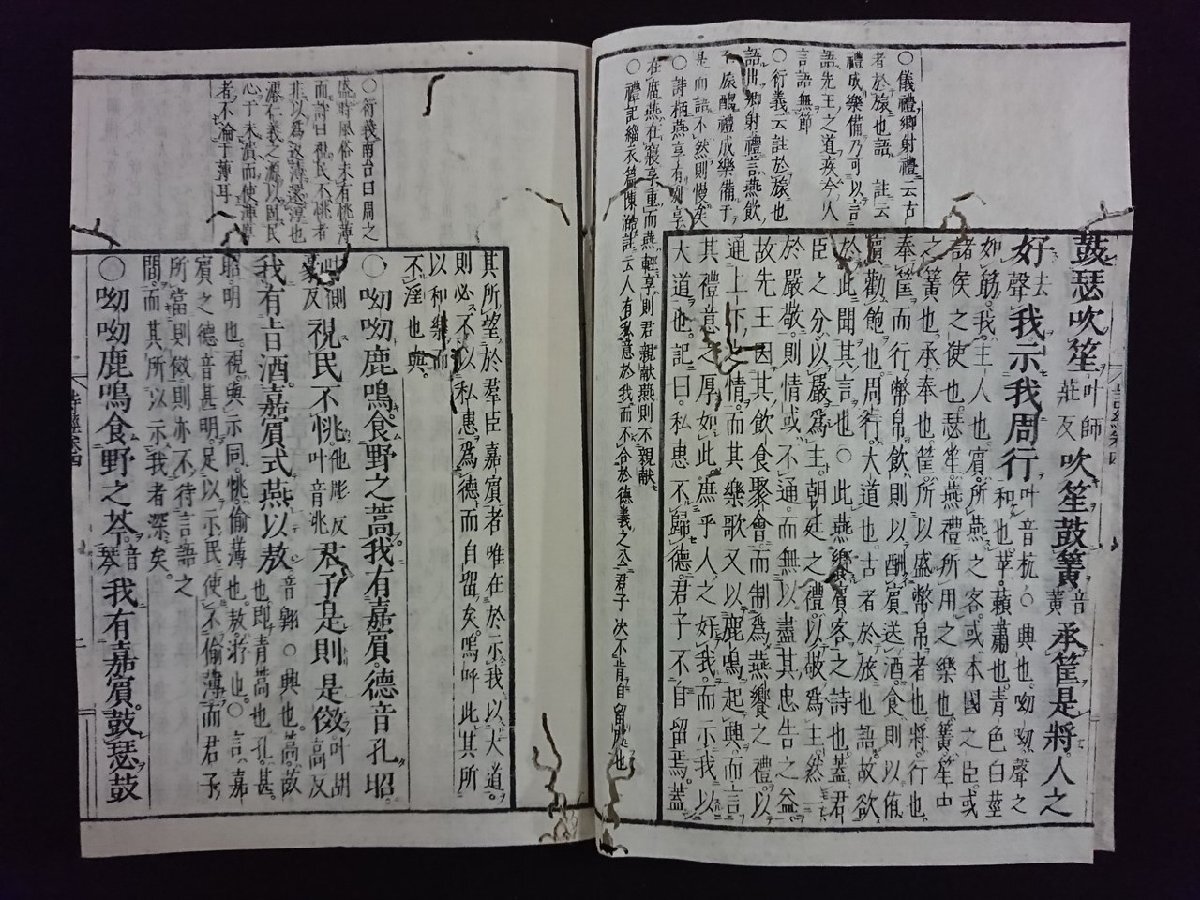 ○儀禮鄉射禮云古
者於旅也語　註云
禮成樂備乃可以言
語先王之道疾今人
言語無節
○衍義云註於旅也
語出鄉射禮言燕飲
至旅酬禮成樂備于
是而語不然則慢矣
○詩柄燕享有別享
在廟燕在寢享重而燕輕享則君親献燕則不親献
○禮記緇衣篇陳澔註云人有私意於我而不合於德義之公君子決不肯自留於也
鼓瑟吹笙叶師莊反吹笙鼓簧音黃承筐是將人之
好去聲我示我周行叶音杭○興也呦呦聲之
和也苹藾蕭也青色白莖
如筯我主人也賓所燕之客或本國之臣或
諸侯之使也瑟笙燕禮所用之樂也簧笙中
之簧也承奉也筐所以盛幣帛者也將行也
奉筐而行幣帛飲則以酬賓送酒食則以侑
賓勸飽也周行大道也古者於旅也語故欲
於此聞其言也○此燕饗賓客之詩也蓋君
臣之分以嚴為主朝廷之禮以敬為主然一
於嚴敬則情或不通而無以盡其忠告之益
故先王因其飲食聚會而制為燕饗之禮以
通上下之情而其樂歌又以鹿鳴起興而言
其禮意之厚如此庶乎人之好我而示我以
大道也記曰私惠不歸德君子不自留焉蓋
○衍義南台曰周之
盛時風俗未有恌薄
而詩曰視民不恌者
非以為汲薄還淳也
心于未漬而使薄薄
者不淪于薄耳
其所望於羣臣嘉賓者唯在於示我以大道
則必不以私惠為德而自留矣嗚呼此其所
以和樂而
不淫也與
○呦呦鹿鳴食野之蒿我有嘉賓德音孔昭
叶側豪反視民不恌他彫反叶音洮君子是則是傚叶胡高反
我有旨酒嘉賓式燕以敖音翱○興也蒿菣也即青蒿也孔甚
昭明也視與示同恌偷薄也敖游也○言嘉
賓之德音甚明足以示民使不偷薄而君子
所當則傚則亦不待言語之
間而其所以示我者深矣
○呦呦鹿鳴食野之芩音琴我有嘉賓鼓瑟鼓